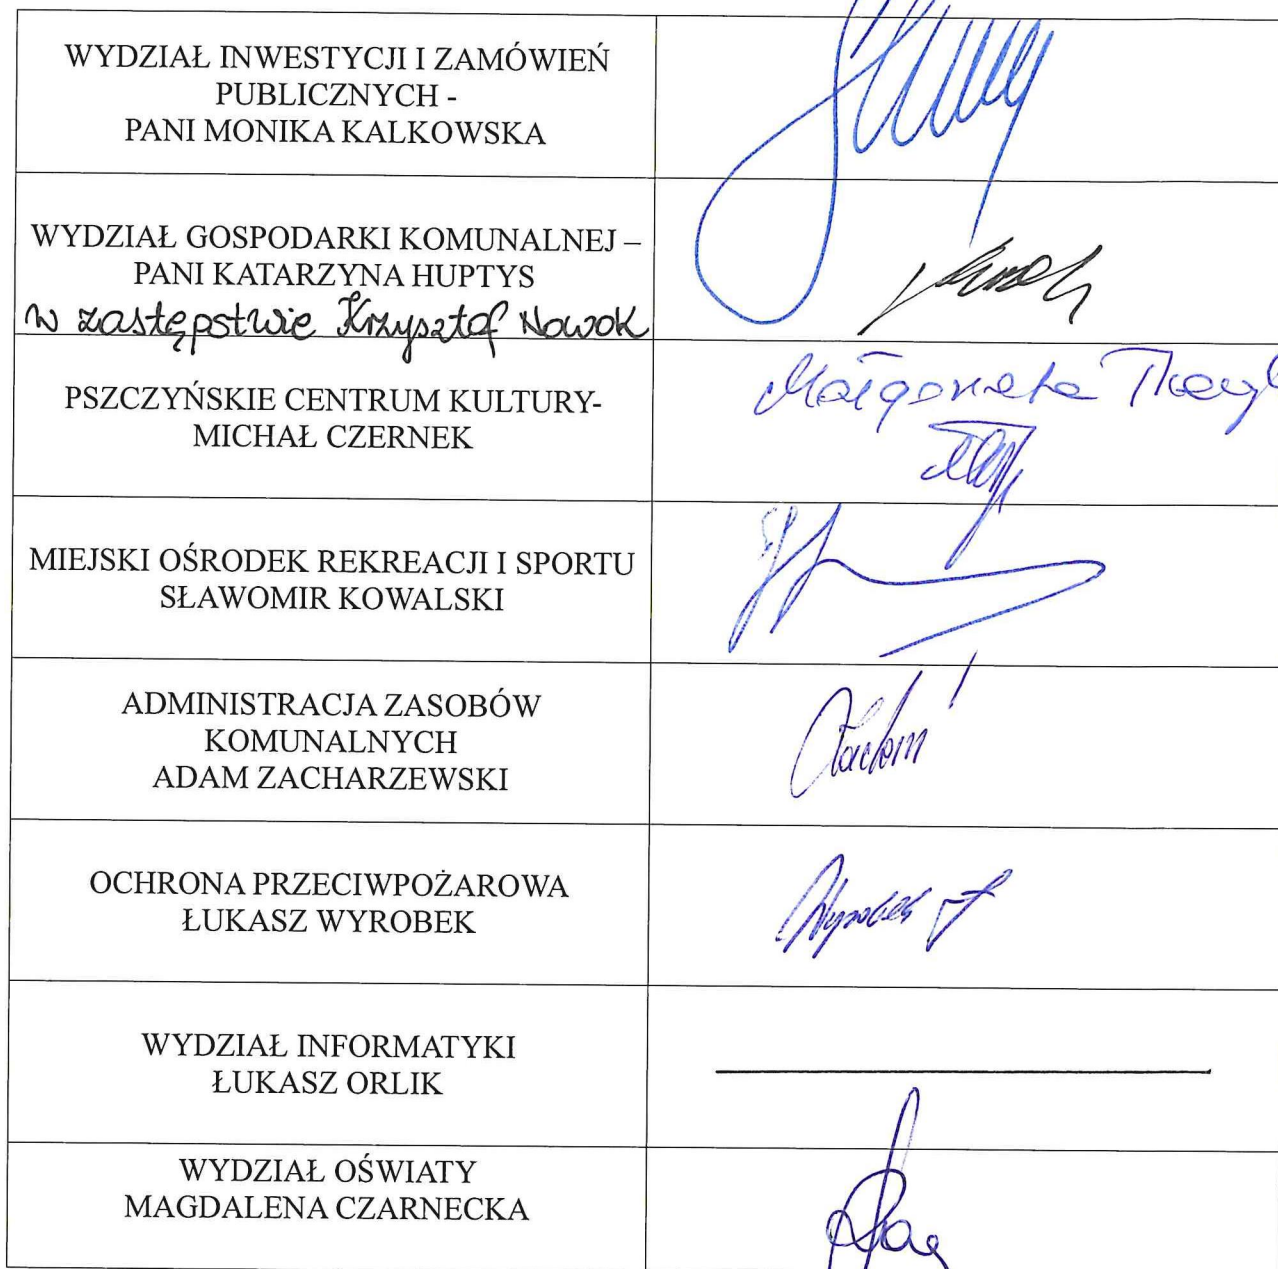 WYDZIAŁ INWESTYCJI I ZAMÓWIEŃ
PUBLICZNYCH -
PANI MONIKA KALKOWSKA
WYDZIAŁ GOSPODARKI KOMUNALNEJ –
PANI KATARZYNA HUPTYS
w zastępstwie Krzysztof Nowok
PSZCZYŃSKIE CENTRUM KULTURY-
MICHAŁ CZERNEK
Małgorzata
MIEJSKI OŚRODEK REKREACJI I SPORTU
SŁAWOMIR KOWALSKI
ADMINISTRACJA ZASOBÓW
KOMUNALNYCH
ADAM ZACHARZEWSKI
OCHRONA PRZECIWPOŻAROWA
ŁUKASZ WYROBEK
Wyrobek
WYDZIAŁ INFORMATYKI
ŁUKASZ ORLIK
WYDZIAŁ OŚWIATY
MAGDALENA CZARNECKA